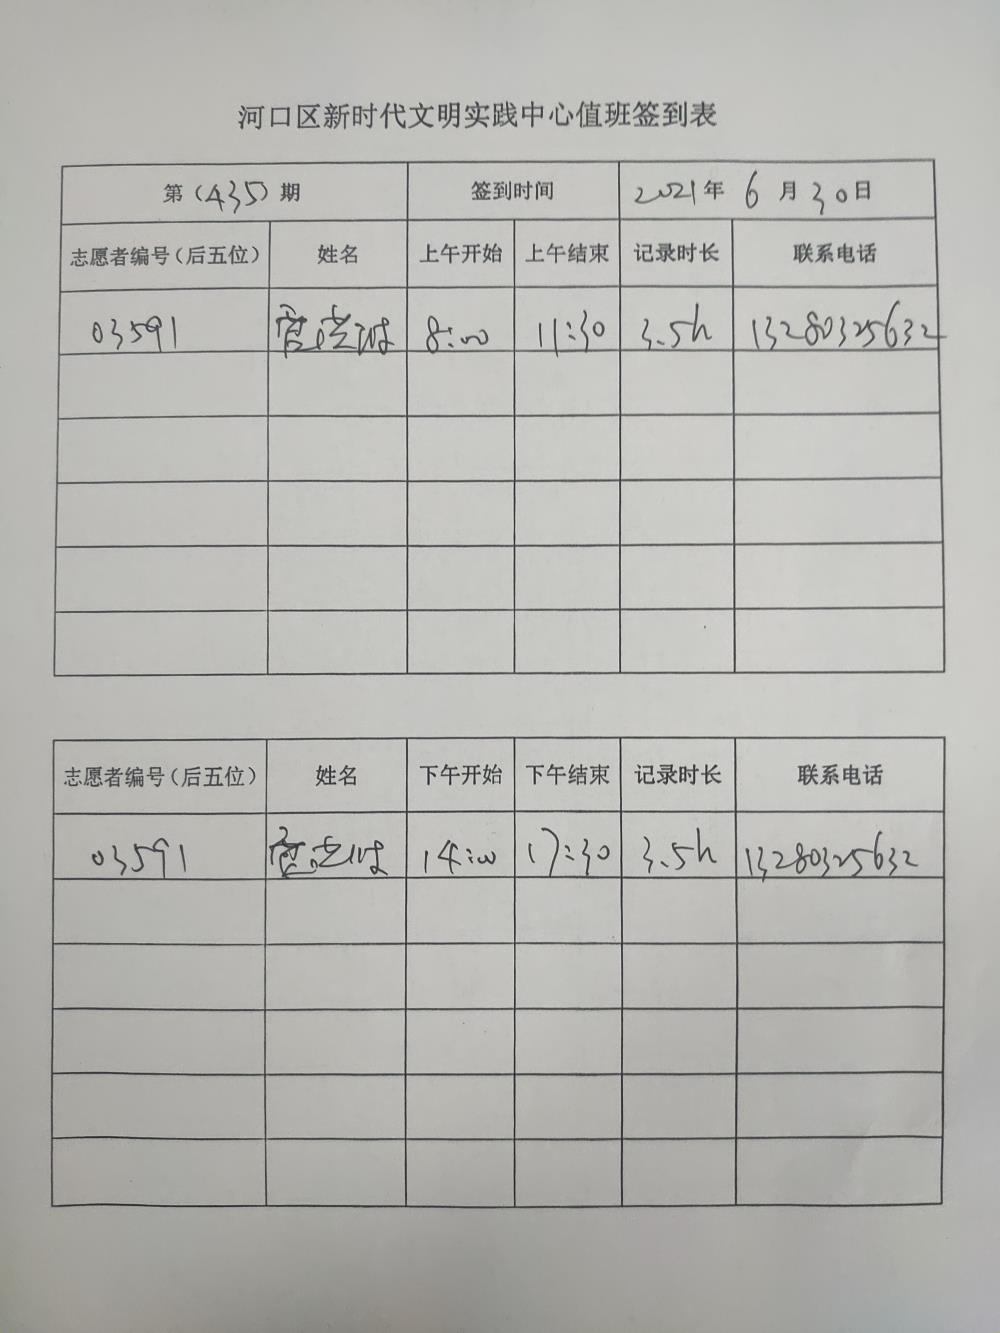 河口区新时代文明实践中心值班签到表
第（435）期 签到时间 2021年 6 月 30日
志愿者编号（后五位） 姓名 上午开始 上午结束 记录时长 联系电话
03591 8:00 11:30 3.5h 13280325632
志愿者编号（后五位） 姓名 下午开始 下午结束 记录时长 联系电话
03591 14:00 17:30 3.5h 13280325632